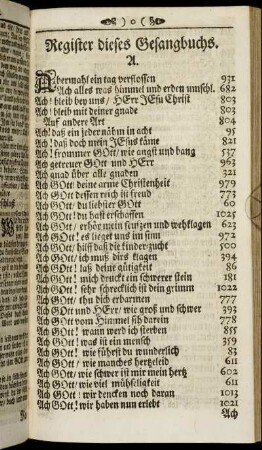 ) o (
Register dieses Gesangbuchs.
A.
Abermahl ein tag verflossen 931
Ach alles was himmel und erden umschl. 682
Ach! bleib bey uns / HErr JEsu Christ 803
Ach! bleib mit deiner gnade 803
Auf andere Art 804
Ach! daß ein jeder nähm in acht 95
Ach! daß doch mein JEsus käme 821
Ach! frommer GOtt / wie angst und bang 537
Ach getreuer GOtt und HErr 963
Ach gnad über alle gnaden 321
Ach GOtt! deine arme Christenheit 979
Ach GOtt! dessen reich ist freud 773
Ach GOtt / du liebster GOtt 60
Ach GOtt! du hast erschaffen 1025
Ach GOtt / erhör mein seufzen und wehklagen 623
Ach GOtt! es lieget uns im sinn 972
Ach GOtt / hilff daß die kinderzucht 500
Ach GOtt / ich muß dirs klagen 394
Ach GOtt! laß deine gütigkeit 86
Ach GOtt! mich drückt ein schwerer stein 181
Ach GOtt! sehr schrecklich ist dein grimm 1022
Ach GOtt / thu dich erbarmen 777
Ach GOtt und HErr / wie groß und schwer 393
Ach GOtt vom Himmel sih darein 778
Ach GOtt! wann werd ich sterben 855
Ach GOtt! was ist ein mensch 359
Ach GOtt! wie führst du wunderlich 83
Ach GOtt / wie manches hertzeleid 611
Ach GOtt / wie schwer ist mir mein hertz 602
Ach GOtt / wie viel mühseligkeit 611
Ach GOtt! wir dencken noch daran 1013
Ach GOtt! wir haben nun erlebt 1021
Ach